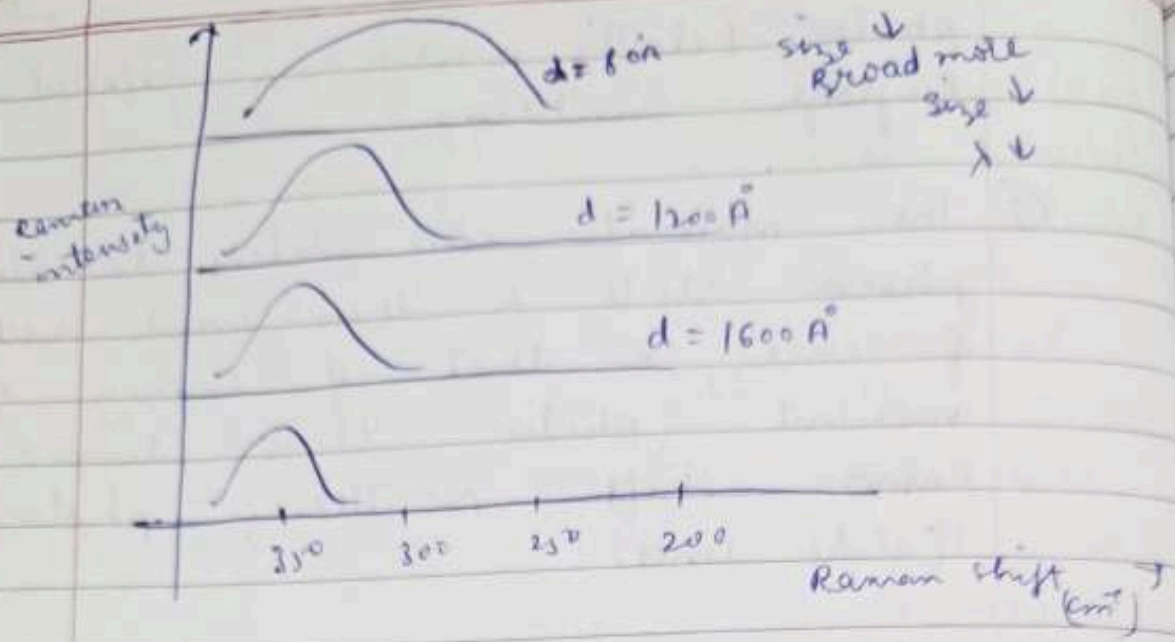 size ↓
Broad more
size ↓
λ ↓
d = 80A
Raman
intensity
d = 1200 A°
d = 1600 A°
350 300 250 200
Raman shift
(cm⁻¹)